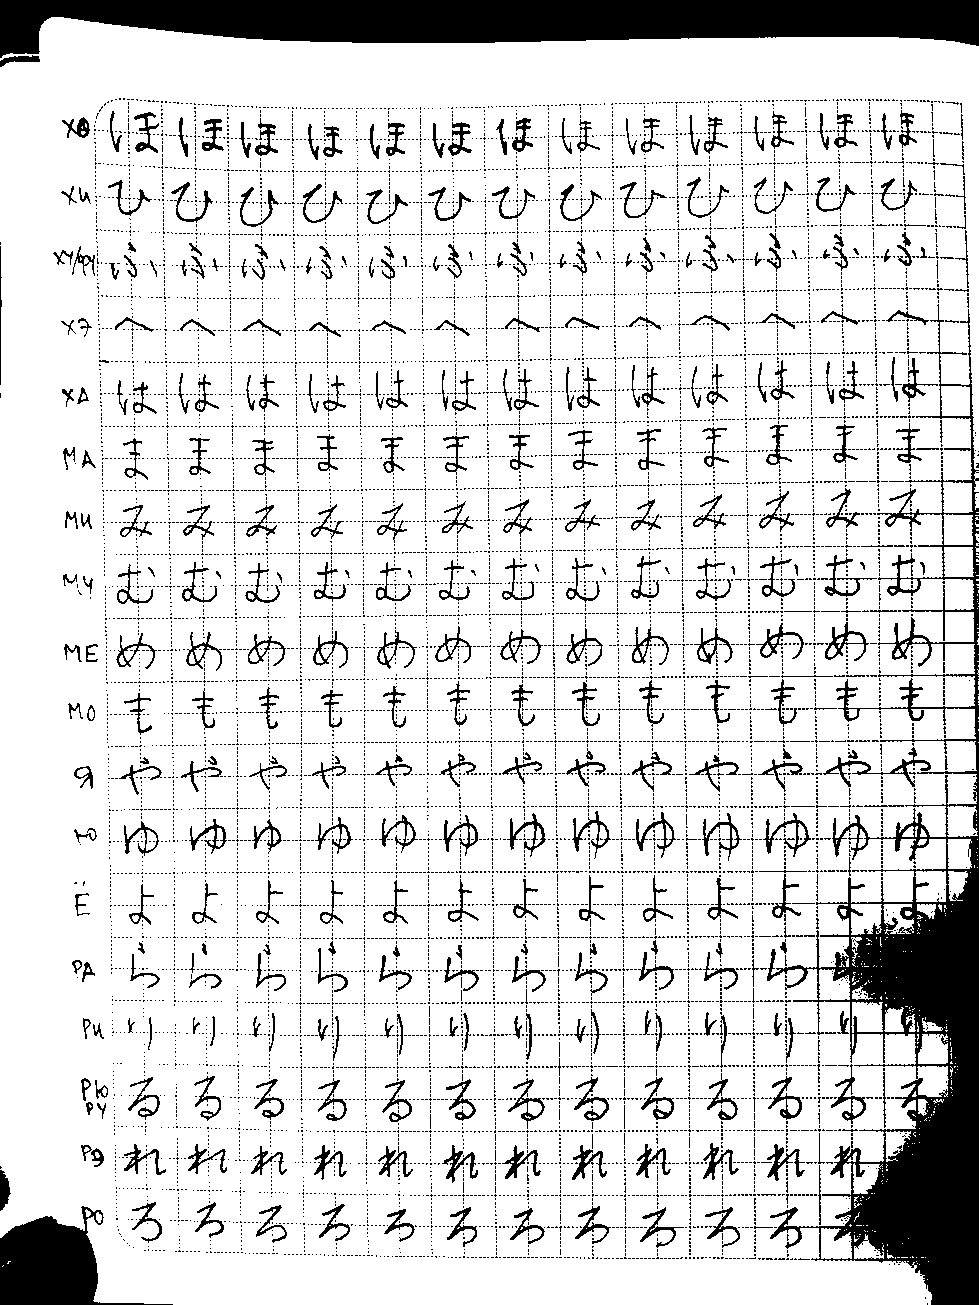 ХО ほ ほ ほ ほ ほ ほ ほ ほ ほ ほ ほ ほ ほ
ХИ ひ ひ ひ ひ ひ ひ ひ ひ ひ ひ ひ ひ ひ
ХУ/ФУ ふ ふ ふ ふ ふ ふ ふ ふ ふ ふ ふ ふ ふ
ХЭ へ へ へ へ へ へ へ へ へ へ へ へ へ
ХА は は は は は は は は は は は は は
МА ま ま ま ま ま ま ま ま ま ま ま ま ま
МИ み み み み み み み み み み み み み
МУ む む む む む む む む む む む む む
МЕ め め め め め め め め め め め め め
МО も も も も も も も も も も も も も
Я や や や や や や や や や や や や や
Ю ゆ ゆ ゆ ゆ ゆ ゆ ゆ ゆ ゆ ゆ ゆ ゆ ゆ
Ё よ よ よ よ よ よ よ よ よ よ よ よ よ
РА ら ら ら ら ら ら ら ら ら ら ら
РИ り り り り り り り り り り り り り
РЮ РУ る る る る る る る る る る る る る
РЭ れ れ れ れ れ れ れ れ れ れ れ れ
РО ろ ろ ろ ろ ろ ろ ろ ろ ろ ろ ろ